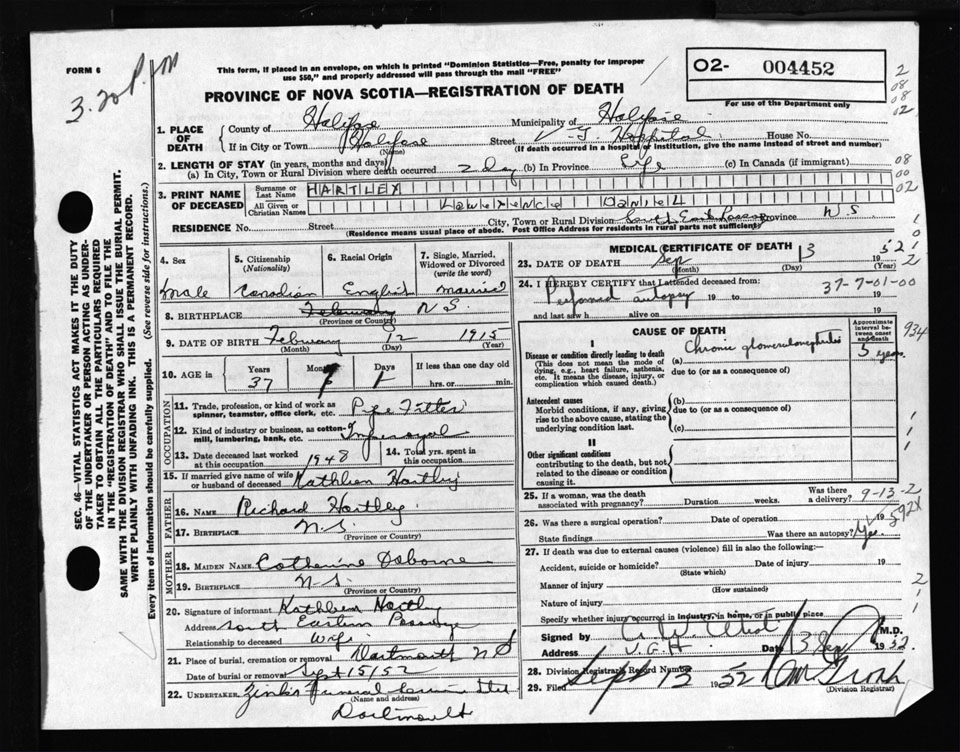 FORM 6
3.20 P.M
This form, if placed in an envelope, on which is printed "Dominion Statistics—Free, penalty for improper
use $50," and properly addressed will pass through the mail "FREE"
O2- 004452
For use of the Department only
PROVINCE OF NOVA SCOTIA—REGISTRATION OF DEATH
1. PLACE OF DEATH
County of Halifax Municipality of Halifax
If in City or Town Halifax Street V.G. Hospital House No.
(Name) (If death occurred in a hospital or institution, give the name instead of street and number)
2. LENGTH OF STAY (in years, months and days)
(a) In City, Town or Rural Division where death occurred 2 day (b) In Province Life (c) In Canada (if immigrant)
3. PRINT NAME OF DECEASED
Surname or Last Name HARTLEY
All Given or Christian Names LAWRENCE DANIEL
RESIDENCE No. Street City, Town or Rural Division South East Passage Province N S
(Residence means usual place of abode. Post Office Address for residents in rural parts not sufficient)
4. Sex Male
5. Citizenship (Nationality) Canadian
6. Racial Origin English
7. Single, Married, Widowed or Divorced (write the word) Married
8. BIRTHPLACE February N S
(Province or Country)
9. DATE OF BIRTH February 12 1915
(Month) (Day) (Year)
10. AGE in Years 37 Months 7 Days 1 If less than one day hrs. or min.
OCCUPATION
11. Trade, profession, or kind of work as spinner, teamster, office clerk, etc. Pipe Fitter
12. Kind of industry or business, as cotton-mill, lumbering, bank, etc. Imperoyal
13. Date deceased last worked at this occupation 1948
14. Total yrs. spent in this occupation
15. If married give name of wife or husband of deceased Kathleen Hartley
FATHER
16. Name Richard Hartley
17. Birthplace N.S.
(Province or Country)
MOTHER
18. Maiden Name Catherine Osborne
19. Birthplace N S
(Province or Country)
20. Signature of informant Kathleen Hartley
Address South Eastern Passage
Relationship to deceased Wife
21. Place of burial, cremation or removal Dartmouth N S
Date of burial or removal Sept 15/52
22. Undertaker Zinks Funeral Service Ltd
(Name and address)
Dartmouth
MEDICAL CERTIFICATE OF DEATH
23. DATE OF DEATH Sep 13 52
(Month) (Day) (Year)
24. I HEREBY CERTIFY that I attended deceased from 37-7-01-00
Performed autopsy 19 to 19
and last saw h alive on 19
CAUSE OF DEATH
Approximate interval between onset and death
I
Disease or condition directly leading to death
(This does not mean the mode of dying, e.g., heart failure, asthenia, etc. It means the disease, injury, or complication which caused death.)
(a) Chronic glomerulonephritis 5 years
due to (or as a consequence of)
934
Antecedent causes
Morbid conditions, if any, giving rise to the above cause, stating the underlying condition last.
(b)
due to (or as a consequence of)
(c)
II
Other significant conditions contributing to the death, but not related to the disease or condition causing it.
25. If a woman, was the death associated with pregnancy? Duration weeks. Was there a delivery? 9-13-2
26. Was there a surgical operation? Date of operation 19
592X
State findings Was there an autopsy? Yes
27. If death was due to external causes (violence) fill in also the following:—
Accident, suicide or homicide? Date of injury 19
(State which)
Manner of injury
(How sustained)
Nature of injury
Specify whether injury occurred in industry, in home, or in public place
Signed by M.D.
Address V.G.H. Date 13 Sep 1952
28. Division Registrar's Record Number
29. Filed Sept 13 1952
(Division Registrar)
SEC. 46—VITAL STATISTICS ACT MAKES IT THE DUTY
OF THE UNDERTAKER OR PERSON ACTING AS UNDER-
TAKER TO OBTAIN ALL THE PARTICULARS REQUIRED
IN THE "REGISTRATION OF DEATH" AND TO FILE THE
SAME WITH THE DIVISION REGISTRAR WHO SHALL ISSUE THE BURIAL PERMIT.
WRITE PLAINLY WITH UNFADING INK. THIS IS A PERMANENT RECORD.
Every item of information should be carefully supplied. (See reverse side for instructions.)